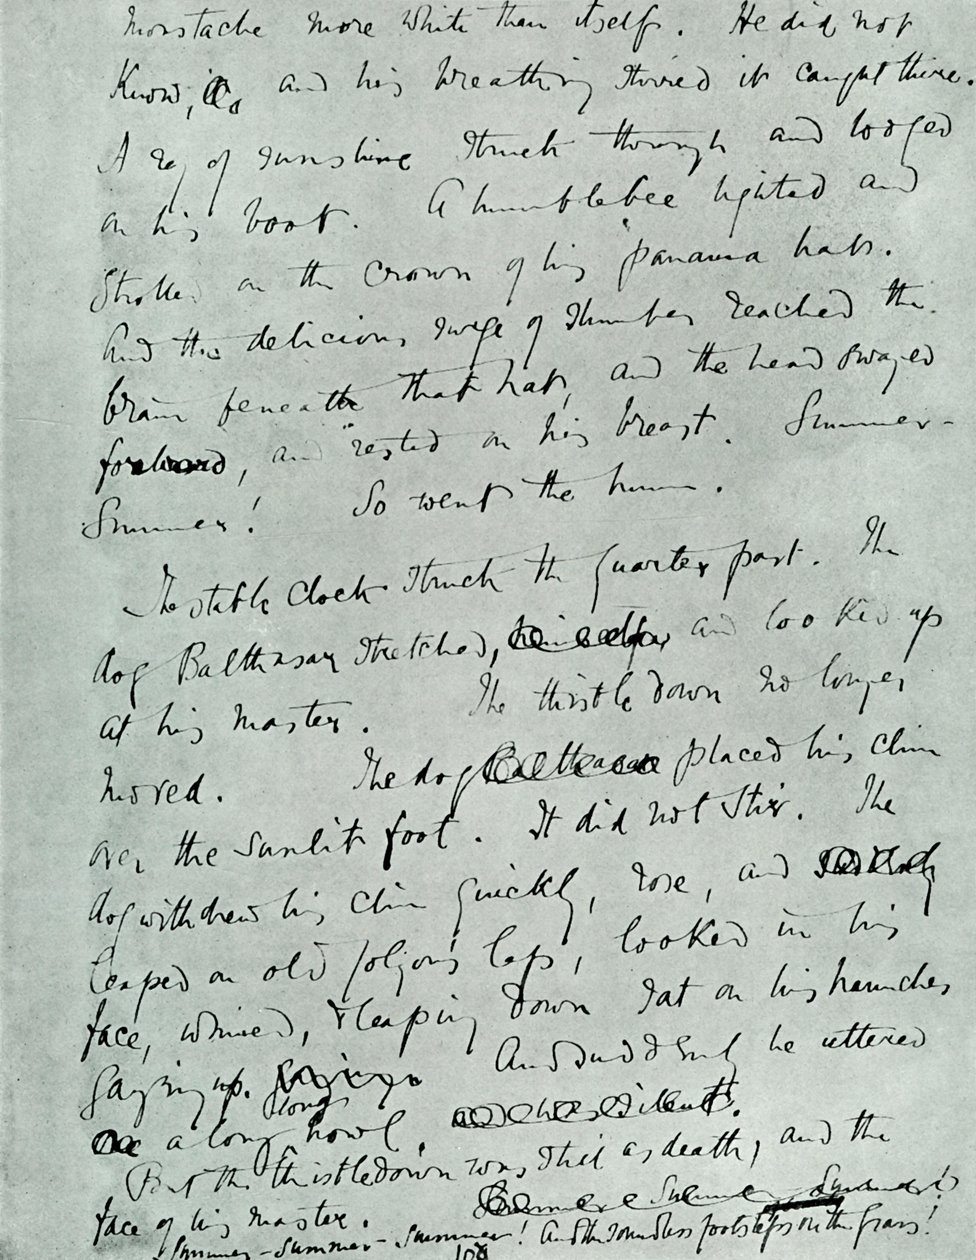 moustache more white than itself. He did not
Know; and his breathing stirred it caught there.
A ray of sunshine struck through and lodged
on his boot. A humblebee lighted and
strolled on the crown of his panama hat.
And the delicious surge of slumber reached the
brain beneath that hat, and the head swayed
forward, and rested on his breast. Summer-
Summer! So went the hum.
The stable clock struck the quarter past. The
dog Balthasar stretched, and looked up
at his master. The thistledown no longer
moved. The dog Balthasar placed his chin
over the sunlit foot. It did not stir. The
dog withdrew his chin quickly, rose, and
leaped on old Jolyon's lap, looked in his
face, whined, & leaping down sat on his haunches
gazing up. And suddenly he uttered
a long, long howl.
But the thistledown was still as death, and the
face of his master.
Summer-Summer-Summer! And the soundless footsteps on the grass!